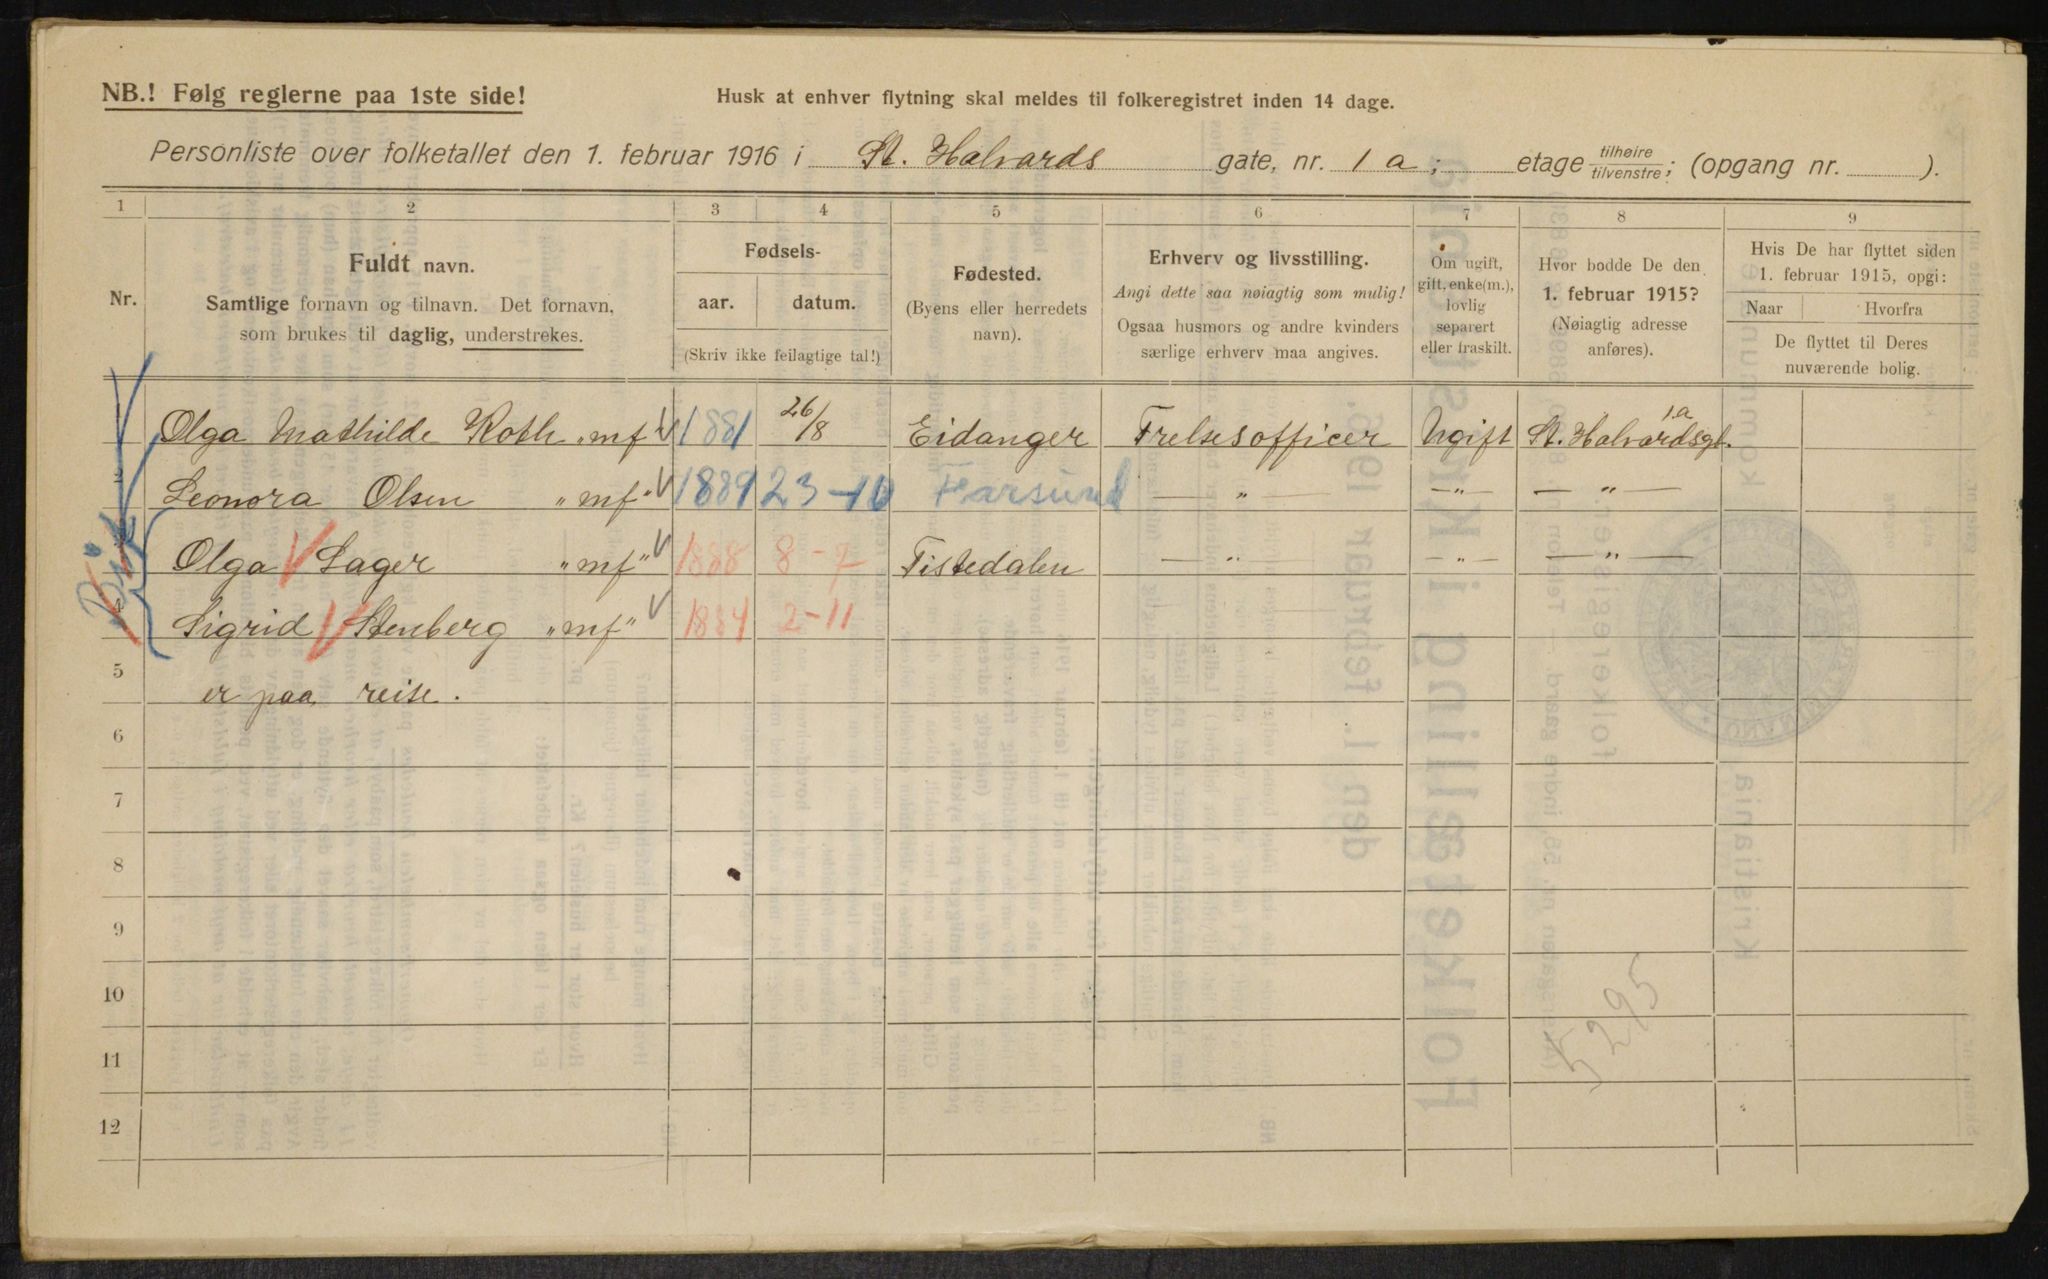 NB.! Følg reglerne paa 1ste side!
Husk at enhver flytning skal meldes til folkeregistret inden 14 dage.
Personliste over folketallet den 1. februar 1916 i St. Halvards gate, nr. 1 a; etage tilhøire tilvenstre; (opgang nr. ).
1 2 3 4 5 6 7 8 9
Nr.
Fuldt navn.
Samtlige fornavn og tilnavn. Det fornavn,
som brukes til daglig, understrekes.
Fødsels-
aar. datum.
(Skriv ikke feilagtige tal!)
Fødested.
(Byens eller herredets
navn).
Erhverv og livsstilling.
Angi dette saa nøiagtig som mulig!
Ogsaa husmors og andre kvinders
særlige erhverv maa angives.
Om ugift,
gift, enke(m.),
lovlig
separert
eller fraskilt.
Hvor bodde De den
1. februar 1915?
(Nøiagtig adresse
anføres).
Hvis De har flyttet siden
1. februar 1915, opgi:
Naar Hvorfra
De flyttet til Deres
nuværende bolig.
Olga Mathilde Roth „mf“ 1881 26/8 Eidanger Frelsesofficer Ugift St. Halvardsgt. 1a
2 Leonora Olsen „mf“ 1889 23-10 Farsund — „ — — „ — — „ —
Olga Lager „mf“ 1888 8-7 Tistedalen — „ — — „ — — „ —
Sigrid Stenberg „mf“ 1884 2-11
5 er paa reise.
6
7
8
9
10
11
12
5395